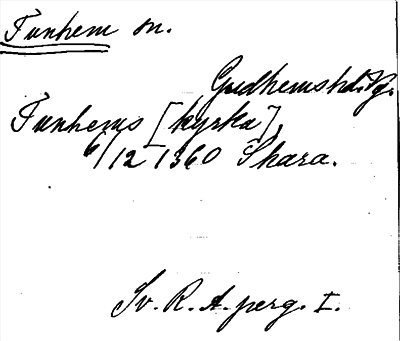 Tunhem sn.
Gudhems hd. Vg.
Tunhems [kyrka],
6/12 1360 Skara.
Sv. R. A. perg. I.